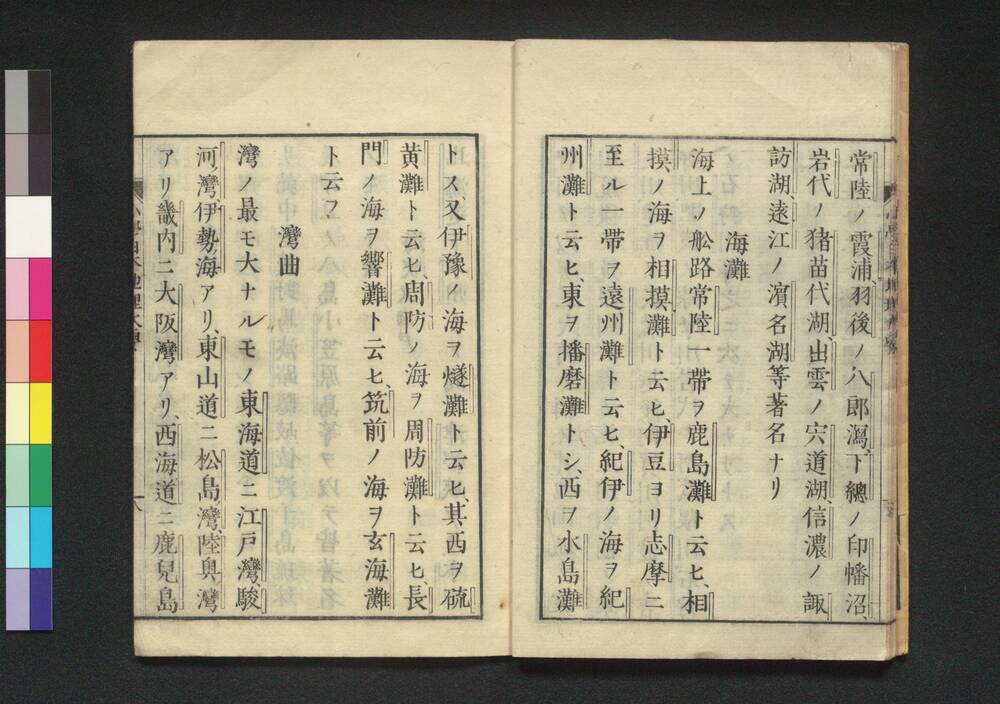 常陸ノ霞浦、羽後ノ八郎潟、下總ノ印幡沼、
岩代ノ猪苗代湖、出雲ノ宍道湖、信濃ノ諏
訪湖、遠江ノ濱名湖等著名ナリ
海灘
海上ノ舩路常陸一帶ヲ鹿島灘ト云ヒ、相
摸ノ海ヲ相摸灘ト云ヒ、伊豆ヨリ志摩ニ
至ル一帶ヲ遠州灘ト云ヒ、紀伊ノ海ヲ紀
州灘ト云ヒ、東ヲ播磨灘トシ、西ヲ水島灘
トス、又伊豫ノ海ヲ燧灘ト云ヒ、其西ヲ硫
黄灘ト云ヒ、周防ノ海ヲ周防灘ト云ヒ、長
門ノ海ヲ響灘ト云ヒ、筑前ノ海ヲ玄海灘
ト云フ
灣曲
灣ノ最モ大ナルモノ東海道ニ江戸灣、駿
河灣、伊勢海アリ、東山道ニ松島灣、陸奥灣
アリ畿内ニ大阪灣アリ、西海道ニ鹿兒島
八